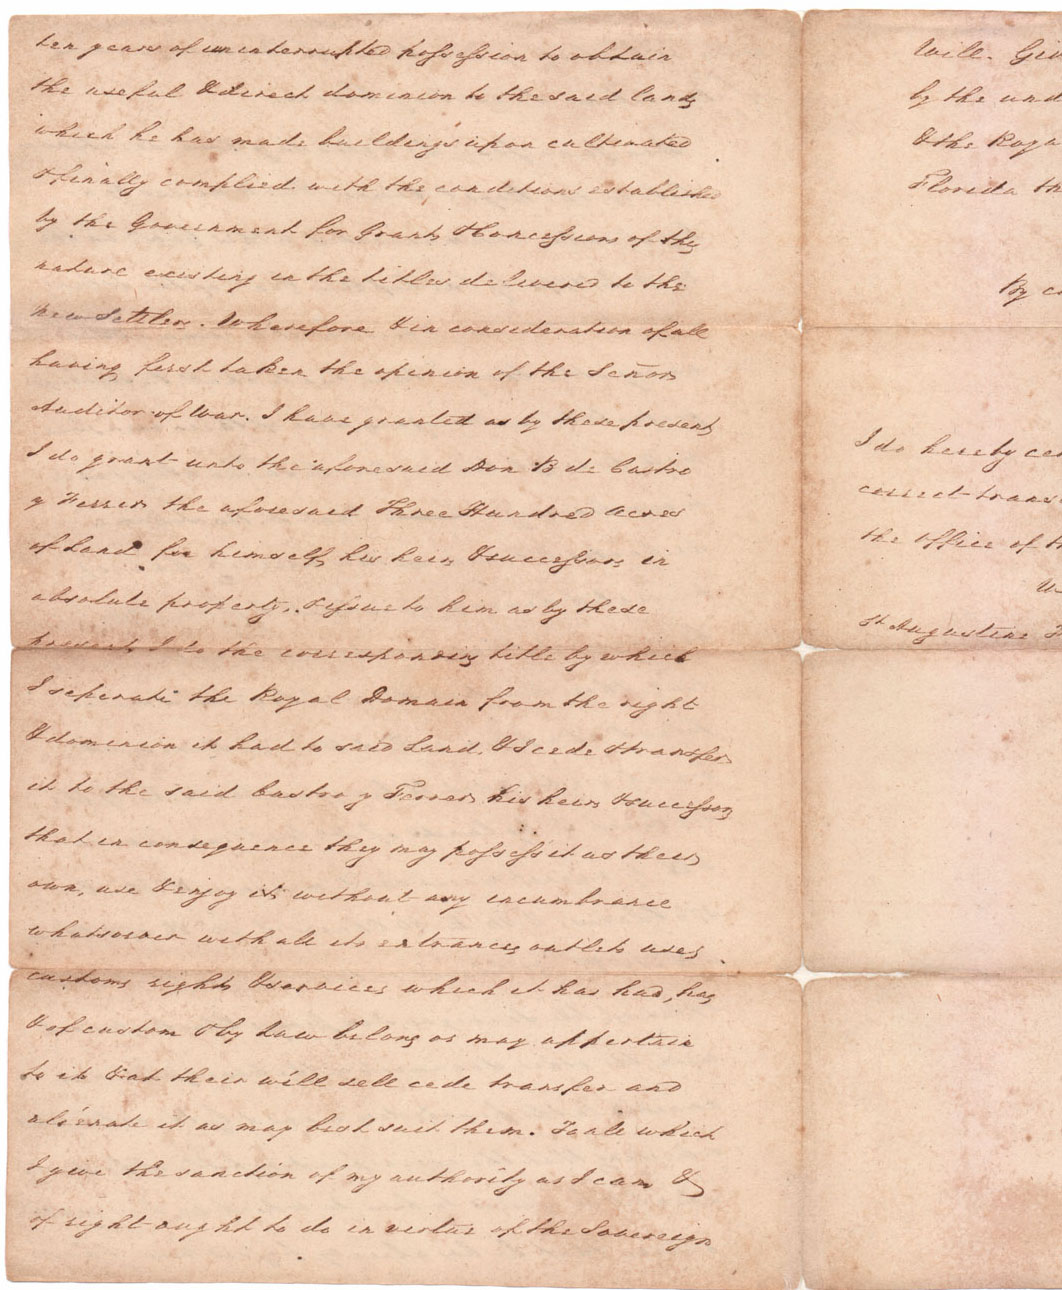 ten years of uninterrupted possession to obtain
the useful & direct dominion to the said land,
which he has made buildings upon cultivated
& finally complied with the conditions established
by the Government for Grants & Concessions of this
nature existing in the titles delivered to the
new Settlers. Wherefore & in consideration of all
having first taken the opinion of the Señor
Auditor of War. I have granted as by these present,
I do grant unto the aforesaid Don B de Castro
y Ferrer the aforesaid Three Hundred acres
of Land for himself, his heirs & successors in
absolute property, & issue to him as by these
presents I do the corresponding title by which
I seperate the Royal Domain from the right
& dominion it had to said Land, & I cede & transfer
it to the said Castro y Ferrer his heirs & successors
that in consequence they may possess it as their
own, use & enjoy it without any incumbrance
whatsoever with all its entrances outlets uses
customs rights & services which it has had, has
& of custom & by Law belong or may appertain
to it & at their will sell cede transfer and
alienate it as may best suit them. To all which
I give the sanction of my authority as I can &
of right ought to do in virtue of the Sovereign
Will. Giv
by the und
& the Roya
Florida th
By co
I do hereby cer
correct trans
the office of t
St Augustine